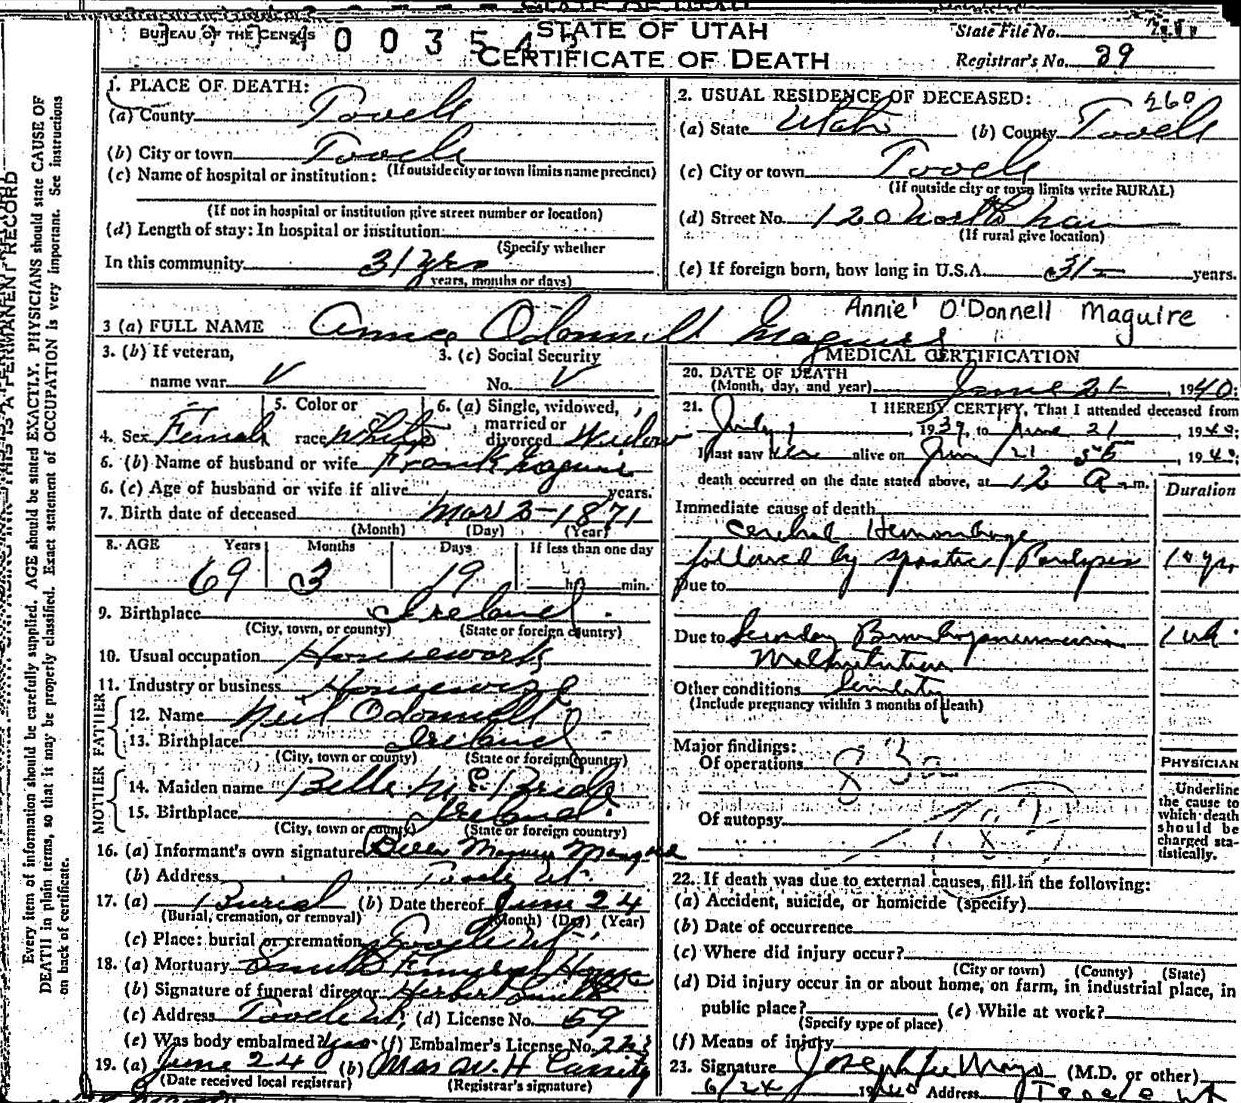 BUREAU OF THE CENSUS
STATE OF UTAH
CERTIFICATE OF DEATH
State File No.
Registrar's No. 29
1. PLACE OF DEATH:
(a) County Tooele
(b) City or town Tooele
(If outside city or town limits name precinct)
(c) Name of hospital or institution:
(If not in hospital or institution give street number or location)
(d) Length of stay: In hospital or institution
(Specify whether
In this community 31 yrs
years, months or days)
2. USUAL RESIDENCE OF DECEASED: 260
(a) State Utah (b) County Tooele
(c) City or town Tooele
(If outside city or town limits write RURAL)
(d) Street No. 120 north main
(If rural give location)
(e) If foreign born, how long in U.S.A. 31 years.
Annie O'Donnell Maguire
3 (a) FULL NAME Annie Odonnell Maguire
3. (b) If veteran,
name war V
3. (c) Social Security
No. V
4. Sex Female
5. Color or
race White
6. (a) Single, widowed,
married or
divorced Widow
6. (b) Name of husband or wife Frank Maguire
6. (c) Age of husband or wife if alive years.
7. Birth date of deceased Mar 2-1871
(Month) (Day) (Year)
8. AGE Years Months Days If less than one day
69 3 19 hr. min.
9. Birthplace Ireland
(City, town, or county) (State or foreign country)
10. Usual occupation Housework
11. Industry or business Housewife
FATHER
12. Name Neil Odonnell
13. Birthplace Ireland
(City, town or county) (State or foreign country)
MOTHER
14. Maiden name Belle McBride
15. Birthplace Ireland
(City, town or county) (State or foreign country)
16. (a) Informant's own signature Maguire
(b) Address Tooele Ut.
17. (a) Burial (b) Date thereof June 24
(Burial, cremation, or removal) (Month) (Day) (Year)
(c) Place: burial or cremation Tooele Ut.
18. (a) Mortuary Smith Funeral Home
(b) Signature of funeral director Herbert Smith
(c) Address Tooele Ut. (d) License No. 59
(e) Was body embalmed? Yes (f) Embalmer's License No.
19. (a) June 24 (b) Mrs W. H. Cassity
(Date received local registrar) (Registrar's signature)
MEDICAL CERTIFICATION
20. DATE OF DEATH
(Month, day, and year) June 21 1940;
21. I HEREBY CERTIFY, That I attended deceased from
July 1 1939, to June 21, 1940;
I last saw her alive on June 21, 1940;
death occurred on the date stated above, at 12 A m.
Duration
Immediate cause of death
Cerebral Hemorrhage
followed by spastic Paralysis 10 yrs
Due to
Due to Secondary Bronchopneumonia 1 wk.
Malnutrition
Other conditions Senility
(Include pregnancy within 3 months of death)
Major findings:
Of operations 83a
Of autopsy
PHYSICIAN
Underline
the cause to
which death
should be
charged sta-
tistically.
22. If death was due to external causes, fill in the following:
(a) Accident, suicide, or homicide (specify)
(b) Date of occurrence
(c) Where did injury occur?
(City or town) (County) (State)
(d) Did injury occur in or about home, on farm, in industrial place, in
public place? (e) While at work?
(Specify type of place)
(f) Means of injury
23. Signature Joseph Lee Mayo (M.D. or other)
6/24 1940 Address Tooele Ut
Every item of information should be carefully supplied. AGE should be stated EXACTLY. PHYSICIANS should state CAUSE OF
DEATH in plain terms, so that it may be properly classified. Exact statement of OCCUPATION is very important. See instructions
on back of certificate.
THIS IS A PERMANENT RECORD